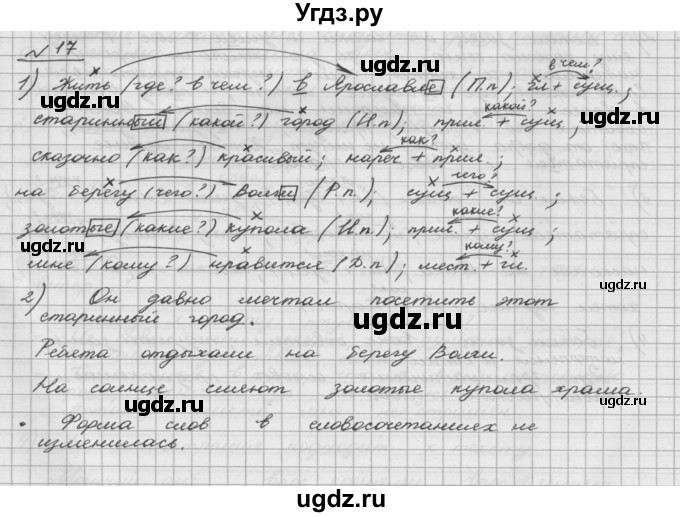 Угдз.ру
№ 17
в чем?
1) Жить (где? в чем?) в Ярославле (П.п); гл + сущ.;
какой?
старинный (какой?) город (И.п); прил. + сущ.;
как?
сказочно (как?) красивый; нареч + прил.;
чего?
на берегу (чего?) Волги (Р.п); сущ + сущ.;
какие?
золотые (какие?) купола (И.п); прил. + сущ.;
кому?
мне (кому?) нравится (Д.п); мест. + гл.
2) Он давно мечтал посетить этот
старинный город.
Ребята отдыхали на берегу Волги.
На солнце сияют золотые купола храма.
• Форма слов в словосочетаниях не
изменилась.
ugdz.ru
ugdz.ru
ugdz.ru
ugdz.ru
ugdz.ru
ugdz.ru
ugdz.ru
ugdz.ru
ugdz.ru
ugdz.ru
ugdz.ru